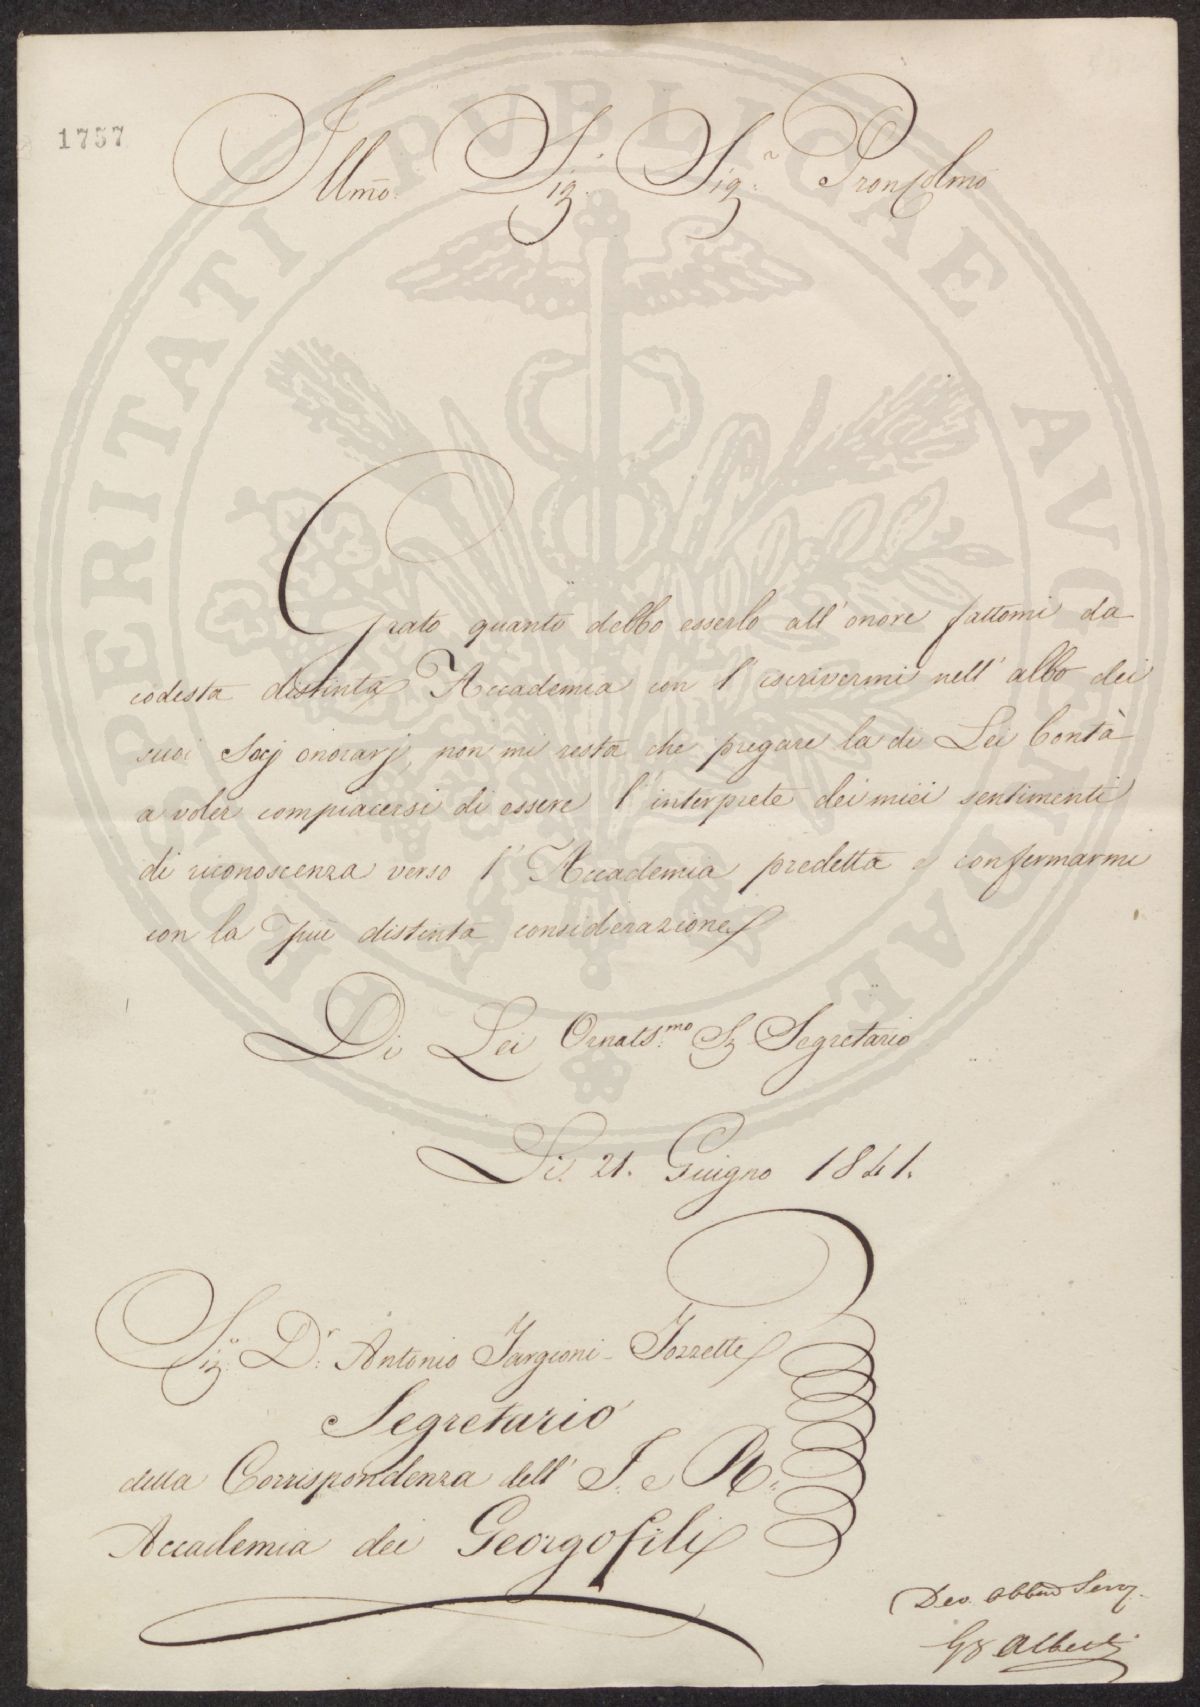 1757
Illmo. Sig. Sig.r Pron Colmo
Grato quanto debbo esserlo all' onore fattomi da
codesta distinta Accademia con l' iscrivermi nell' albo dei
suoi Socj onorarj, non mi resta che pregare la di Lei Bontà
a voler compiacersi di essere l' interprete dei miei sentimenti
di riconoscenza verso l' Accademia predetta e confermarmi
con la più distinta considerazione
Di Lei Ornats.mo Sig Segretario
Li. 21. Giugno 1841.
Sig.r D.r Antonio Targioni-Tozzetti
Segretario
della Corrispondenza dell' I. e R.
Accademia dei Georgofili
Dev. Obbmo Serv.
Alberti
PROSPERITATI PVBLICAE AVGENDAE